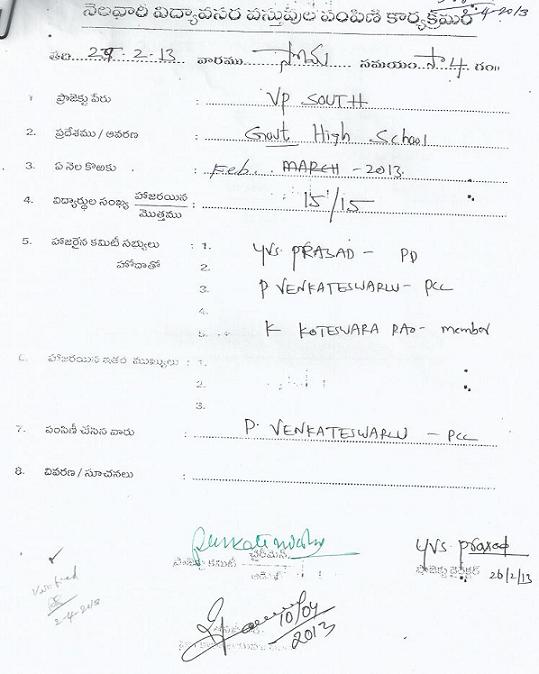 2-4-2013
నెలవారి విద్యావసర వస్తువుల పంపిణి కార్యక్రమం
తేది 2-13 వారము సమయం సా 4 గం॥
1 ప్రాజెక్టు పేరు : VP SOUTH
2. ప్రదేశము / ఆవరణ : Govt High School
3. ఏ నెల కొఱకు : Feb. MARCH - 2013.
4. విద్యార్థుల సంఖ్య హాజరయిన / మొత్తము : 15/15
5. హాజరైన కమిటీ సభ్యులు : 1. YVS. PRASAD - PD
హోదాతో 2.
3. P VENKATESWARLU - PCC
4.
5. K KOTESWARA RAO - member
6. హాజరయిన ఇతర ముఖ్యులు : 1.
2.
3.
7. పంపిణీ చేసిన వారు : P. VENKATESWARLU - PCC
8. వివరణ / సూచనలు :
చైర్‌మెన్ YVS. Prasad
ప్రాజెక్టు కమిటీ ప్రాజెక్టు డైరెక్టర్ 26/2/13
Verified
2-4-2013
10/04
2013